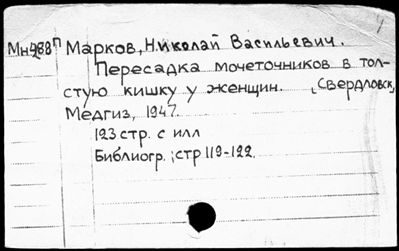 Мн4887 Марков, Николай Васильевич.
Пересадка мочеточников в тол-
стую кишку у женщин. [Свердловск,
Медгиз, 1947.
123 стр. с илл
Библиогр.: стр 119-122.